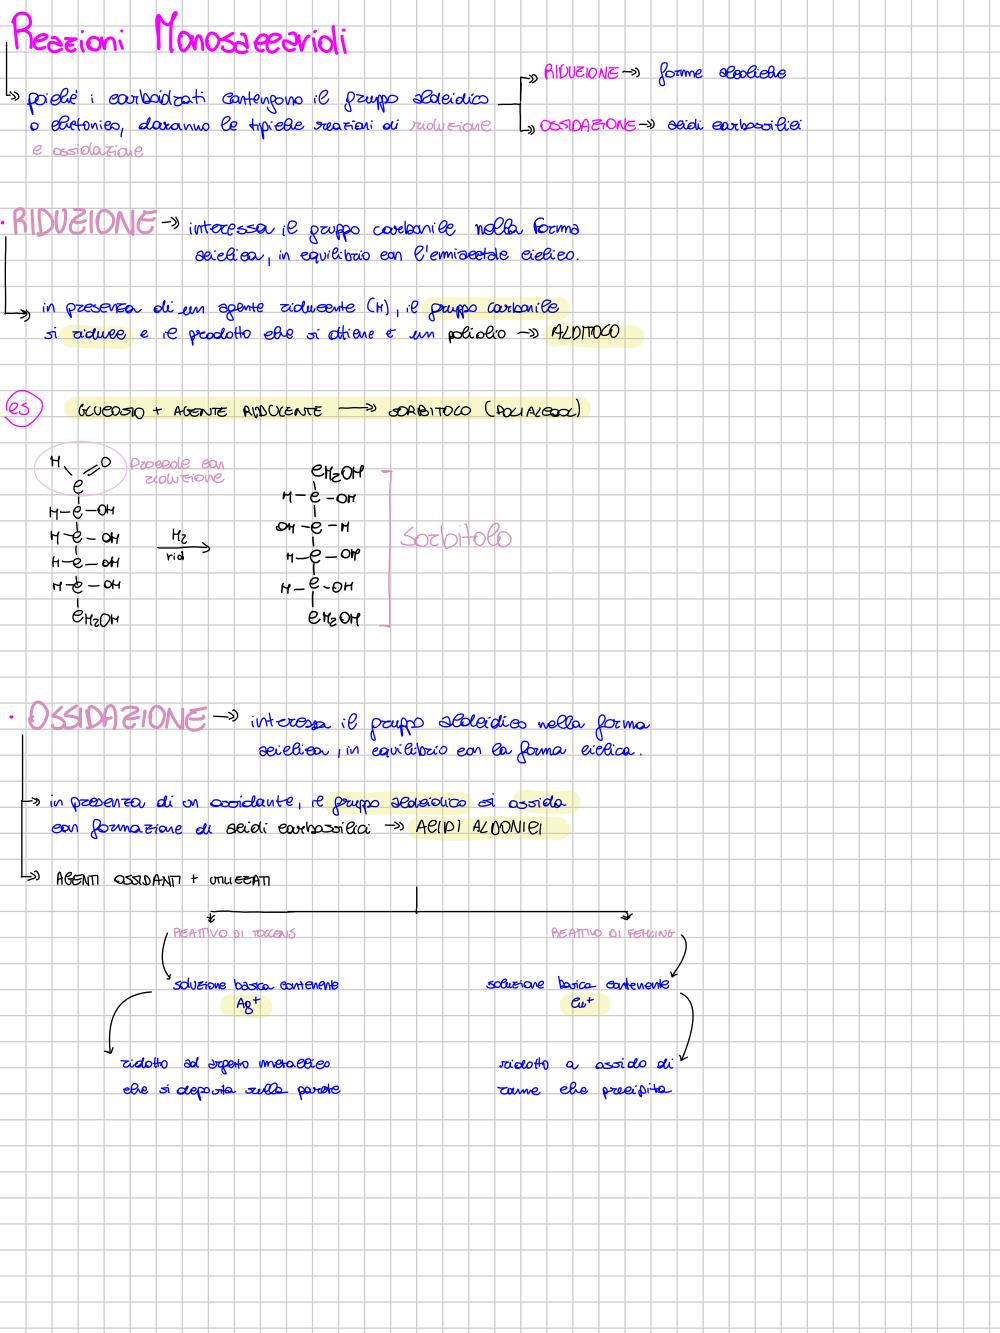 Reazioni Monosaccaridi
poiché i carboidrati contengono il gruppo aldeidico
o chetonico, daranno le tipiche reazioni di riduzione
e ossidazione
RIDUZIONE → forme alcoliche
OSSIDAZIONE → acidi carbossilici
· RIDUZIONE → interessa il gruppo carbonile nella forma
aciclica, in equilibrio con l'emiacetale ciclico.
in presenza di un agente riducente (H), il gruppo carbonile
si riduce e il prodotto che si ottiene è un poliolio → ALDITOLO
es GLUCOSIO + AGENTE RIDUCENTE → SORBITOLO (POLIALCOL)
H O
C
H-C-OH
H-C-OH
H-C-OH
H-C-OH
CH2OH
Procede con
riduzione
H2
rid
CH2OH
H-C-OH
OH-C-H
H-C-OH
H-C-OH
CH2OH
Sorbitolo
· OSSIDAZIONE → interessa il gruppo aldeidico nella forma
aciclica, in equilibrio con la forma ciclica.
in presenza di un ossidante, il gruppo aldeidico si ossida
con formazione di acidi carbossilici → ACIDI ALDONICI
AGENTI OSSIDANTI + UTILIZZATI
REATTIVO DI TOLLENS
soluzione basica contenente
Ag+
ridotto ad argento metallico
che si deposita sulla parete
REATTIVO DI FEHLING
soluzione basica contenente
Cu+
ridotto a ossido di
rame che precipita